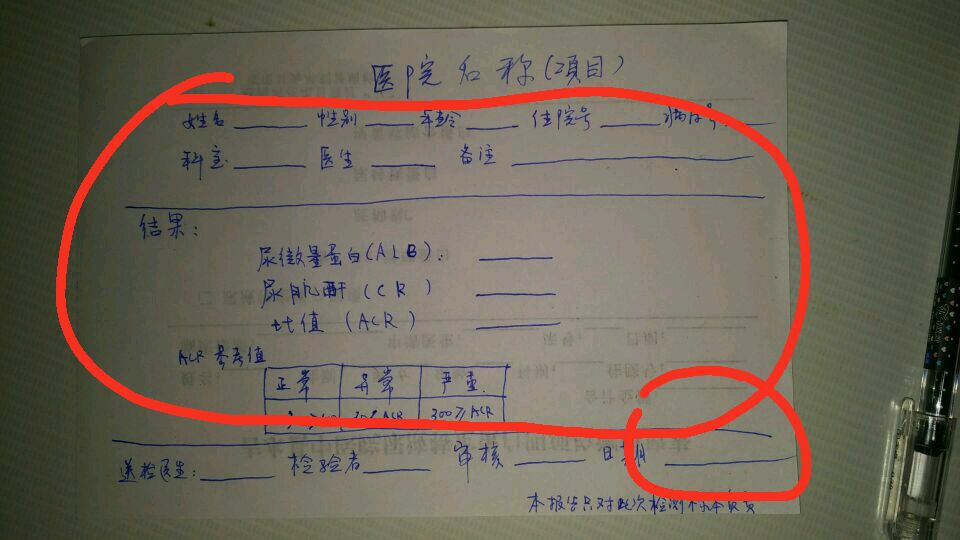 医院名称(项目)
姓名 性别 年龄 住院号 病历号
科室 医生 备注
结果:
尿微量蛋白(ALB):
尿肌酐(CR)
比值(ACR)
ACR参考值
正常 异常 严重
300≥ACR
送检医生: 检验者 审核 日期
本报告只对此次检测标本负责